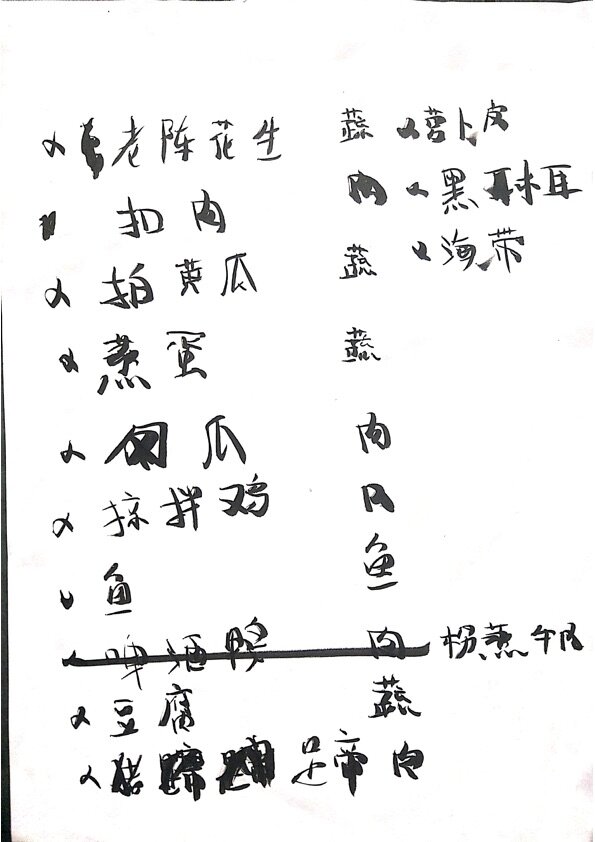 老陈花生 蔬 萝卜皮
扣肉 肉 黑木耳
拍黄瓜 蔬 海带
蒸蛋 蔬
瓜 肉
掠拌鸡 肉
鱼 鱼
啤酒鸭 肉 粉蒸牛肉
豆腐 蔬
猪蹄 蹄 肉